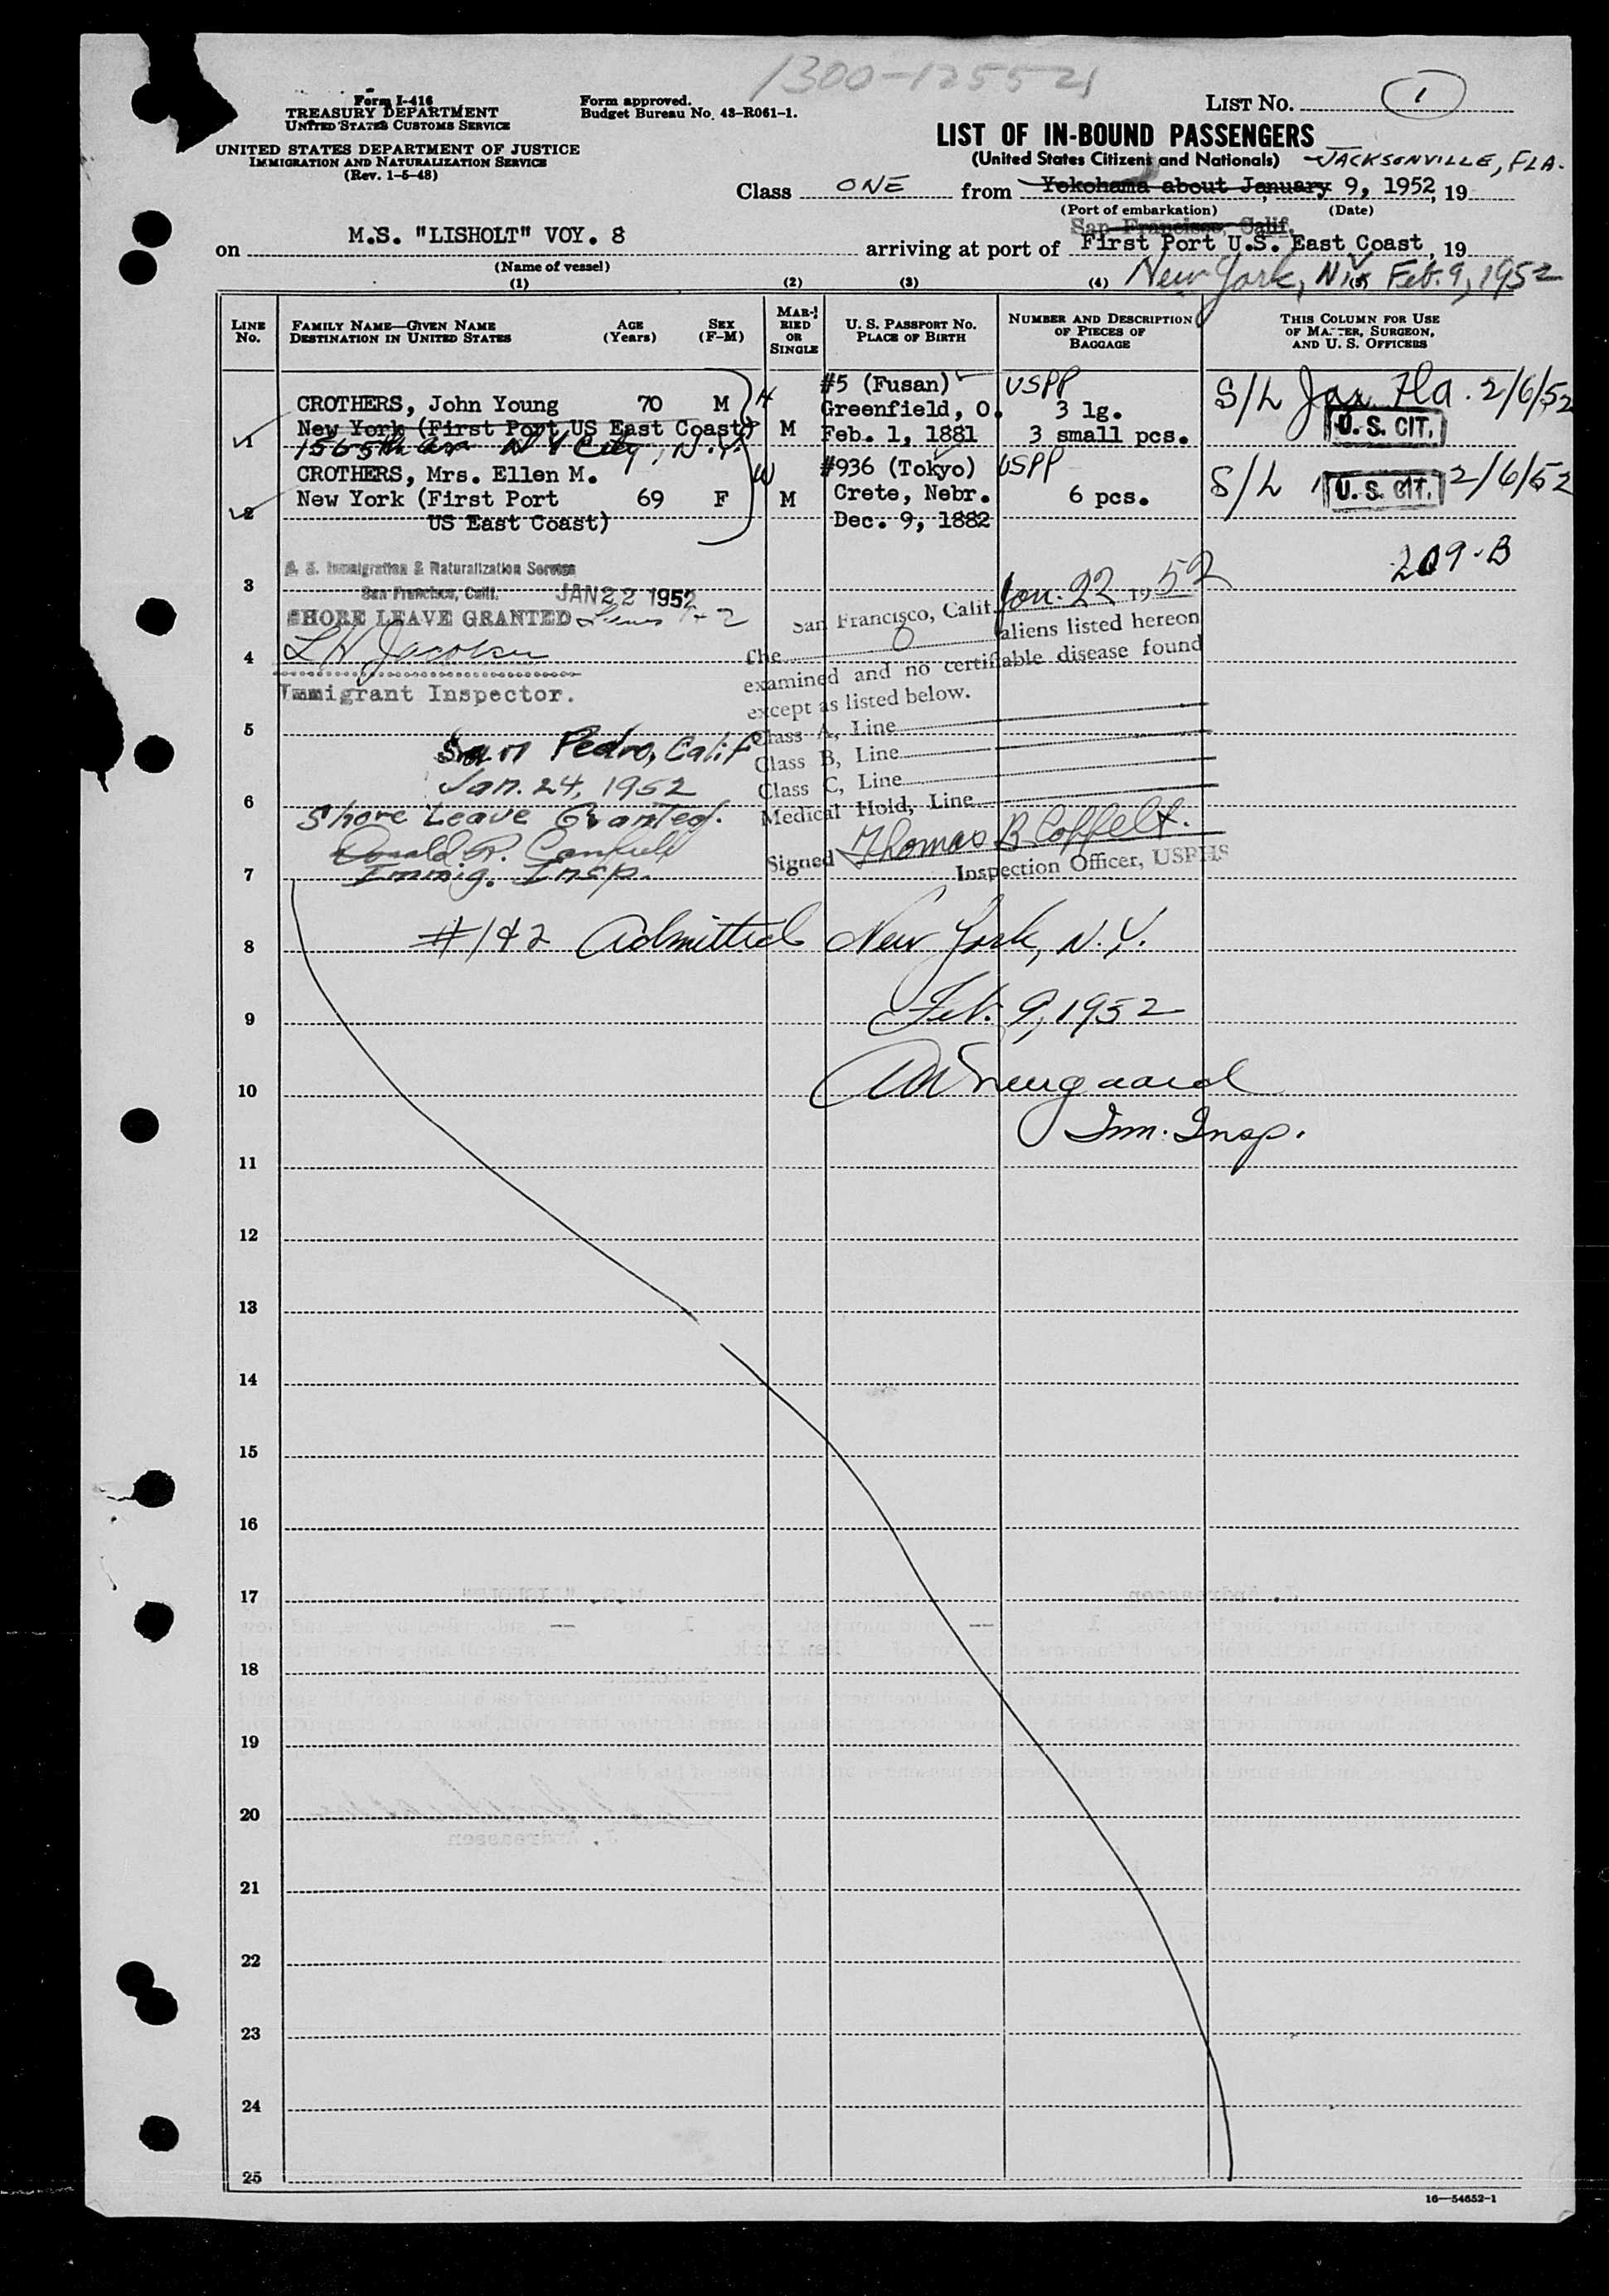 1300-12552
Form I-416
TREASURY DEPARTMENT
UNITED STATES CUSTOMS SERVICE
UNITED STATES DEPARTMENT OF JUSTICE
IMMIGRATION AND NATURALIZATION SERVICE
(Rev. 1-5-48)
Form approved.
Budget Bureau No. 43-R061-1.
LIST NO. 1
LIST OF IN-BOUND PASSENGERS
(United States Citizens and Nationals)
JACKSONVILLE, FLA.
Class ONE from Yokohama about January 9, 1952, 19
(Port of embarkation) (Date)
San Francisco, Calif.
on M.S. "LISHOLT" VOY. 8 arriving at port of First Port U.S. East Coast, 19
(Name of vessel)
New York, N.Y. Feb. 9, 1952
(1) (2) (3) (4) (5)
LINE No. FAMILY NAME—GIVEN NAME DESTINATION IN UNITED STATES AGE (Years) SEX (F-M) MARRIED OR SINGLE U. S. PASSPORT NO. PLACE OF BIRTH NUMBER AND DESCRIPTION OF PIECES OF BAGGAGE THIS COLUMN FOR USE OF MASTER, SURGEON, AND U. S. OFFICERS
#5 (Fusan) USPP
CROTHERS, John Young 70 M H Greenfield, O. 3 lg. S/L Jax Fla. 2/6/52
1 New York (First Port US East Coast) M Feb. 1, 1881 3 small pcs. U. S. CIT.
156 5th Ave N Y City, N.Y.
CROTHERS, Mrs. Ellen M. W #936 (Tokyo) USPP
2 New York (First Port 69 F M Crete, Nebr. 6 pcs. S/L U. S. CIT. 2/6/52
US East Coast) Dec. 9, 1882
209-B
U. S. Immigration & Naturalization Service
3 San Francisco, Calif. JAN 22 1952
SHORE LEAVE GRANTED Lines 1-2
4 L H Jacobsen
Immigrant Inspector.
San Francisco, Calif. Jan. 22 1952
The 0 aliens listed hereon
examined and no certifiable disease found
except as listed below.
Class A, Line
Class B, Line
Class C, Line
Medical Hold, Line
Signed Thomas B Coffelt.
Inspection Officer, USPHS
5 San Pedro, Calif
Jan. 24, 1952
6 Shore Leave Granted.
Donald R.
7 Immig. Insp.
8 #1&2 Admitted New York, N.Y.
9 Feb. 9, 1952
10
Imm. Insp.
11
12
13
14
15
16
17
18
19
20
21
22
23
24
25
16—54652-1